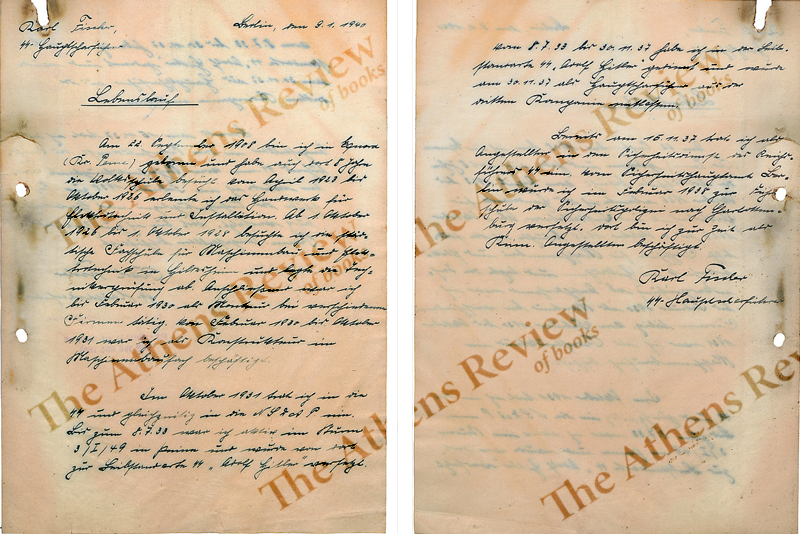 Karl Fiedler,
Berlin, den 9.1.1940
SS-Hauptscharführer
Lebenslauf
Am 22. September 1908 bin ich in
(Kr. Peine) geboren und habe auch dort 8 Jahre
die Volksschule besucht. Vom April 1923 bis
Oktober 1926 erlernte ich das Handwerk für
Elektrotechnik und Installation. Ab 1. Oktober
1926 bis 1. Oktober 1928 besuchte ich die städ-
tische Fachschule für Maschinenbau und Elek-
trotechnik in Hildesheim und legte die Tech-
nikerprüfung ab. Anschliessend war ich
bis Februar 1930 als Monteur bei verschiedenen
Firmen tätig. Von Februar 1930 bis Oktober
1931 war ich als Konstrukteur im
Maschinenbaufach beschäftigt.
Im Oktober 1931 trat ich in die
SS und gleichzeitig in die NSDAP ein.
Bis zum 8.7.33 war ich aktiv im Sturm
3/I/49 in Peine und wurde von dort
zur Leibstandarte SS "Adolf Hitler" versetzt.
Vom 8.7.33 bis 30.11.37 habe ich in der Leib-
standarte SS "Adolf Hitler" gedient und wurde
am 30.11.37 als Hauptscharführer aus der
dritten Kompanie entlassen.
Bereits am 16.11.37 trat ich als
Angestellter in den Sicherheitsdienst des Reichs-
führers SS ein. Vom Sicherheitshauptamt Ber-
lin wurde ich im Februar 1938 zur Führer-
schule der Sicherheitspolizei nach Charlotten-
burg versetzt. Dort bin ich zur Zeit als
Krim. Angestellter beschäftigt.
Karl Fiedler
SS-Hauptscharführer
The Athens Review
of books
The Athens Review
of books
The Athens Review
of books
The Athens Review
of books